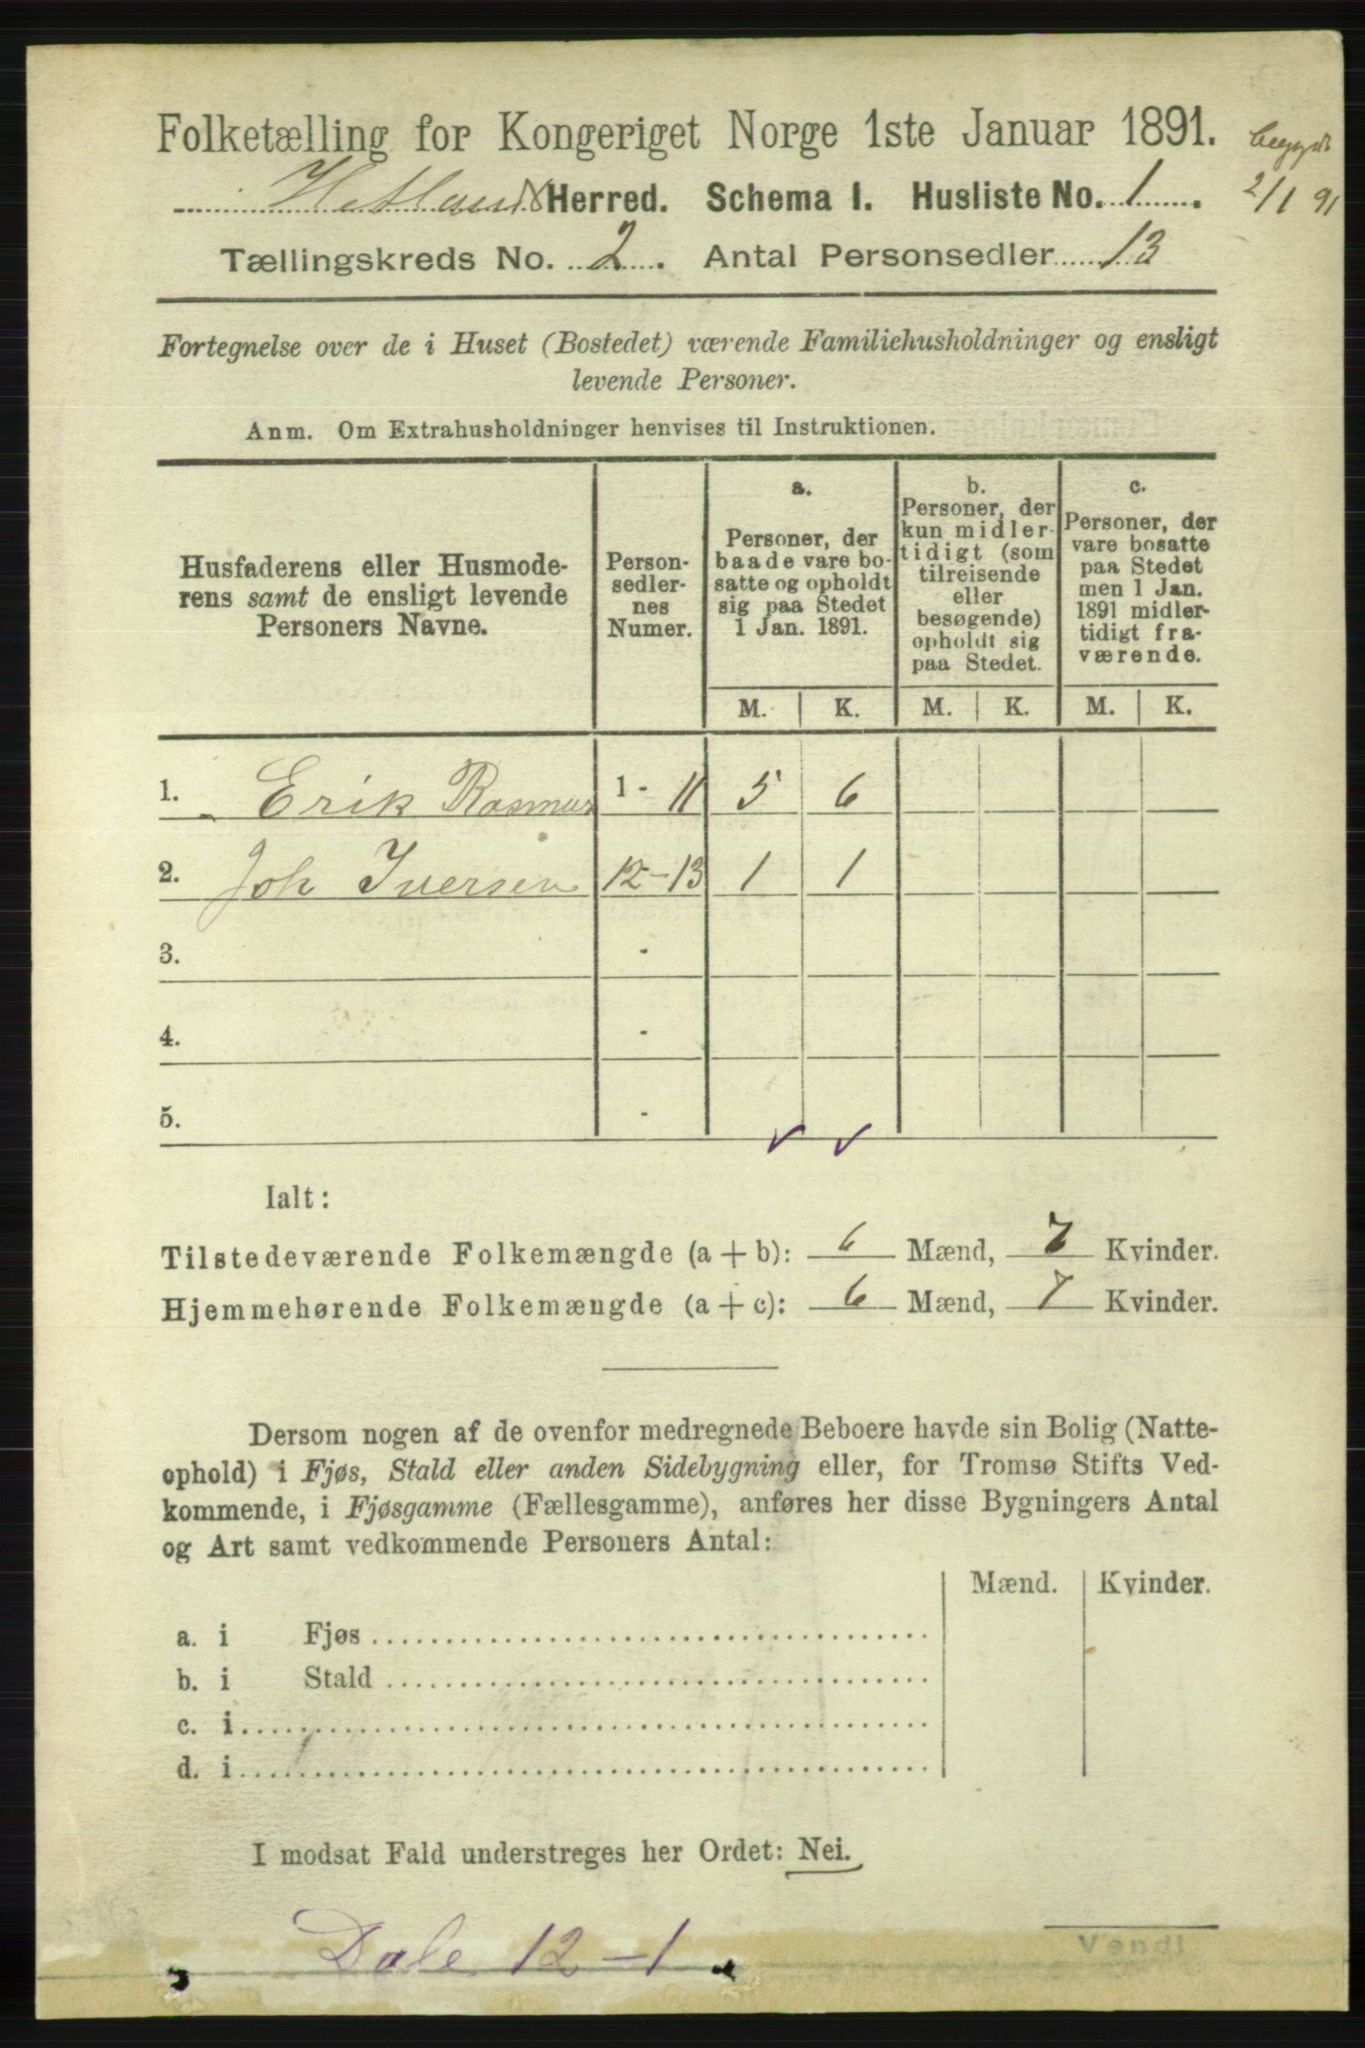 Folketælling for Kongeriget Norge 1ste Januar 1891.
2/1 91
Hetlands Herred. Schema I. Husliste No. 1.
Tællingskreds No. 2. Antal Personsedler 13
Fortegnelse over de i Huset (Bostedet) værende Familiehusholdninger og ensligt
levende Personer.
Anm. Om Extrahusholdninger henvises til Instruktionen.
Husfaderens eller Husmode-
rens samt de ensligt levende
Personers Navne.
Person-
sedler-
nes
Numer.
a.
Personer, der
baade vare bo-
satte og opholdt
sig paa Stedet
1 Jan. 1891.
b.
Personer, der
kun midler-
tidigt (som
tilreisende
eller
besøgende)
opholdt sig
paa Stedet.
c.
Personer, der
vare bosatte
paa Stedet
men 1 Jan.
1891 midler-
tidigt fra-
værende.
M. K. M. K. M. K.
1. Erik Rasmus 1 - 11 5 6
2. Joh Iversen 12-13 1 1
3. -
4. -
5. -
Ialt:
Tilstedeværende Folkemængde (a + b): 6 Mænd, 7 Kvinder.
Hjemmehørende Folkemængde (a + c): 6 Mænd, 7 Kvinder.
Dersom nogen af de ovenfor medregnede Beboere havde sin Bolig (Natte-
ophold) i Fjøs, Stald eller anden Sidebygning eller, for Tromsø Stifts Ved-
kommende, i Fjøsgamme (Fællesgamme), anføres her disse Bygningers Antal
og Art samt vedkommende Personers Antal:
Mænd. Kvinder.
a. i Fjøs
b. i Stald
c. i
d. i
I modsat Fald understreges her Ordet: Nei.
Dale 12-1
Vend!